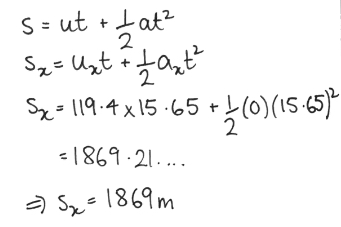 S = ut + 1/2 at²
Sₓ = uₓt + 1/2 aₓt²
Sₓ = 119·4 x 15·65 + 1/2 (0)(15·65)²
= 1869·21....
⇒ Sₓ = 1869m